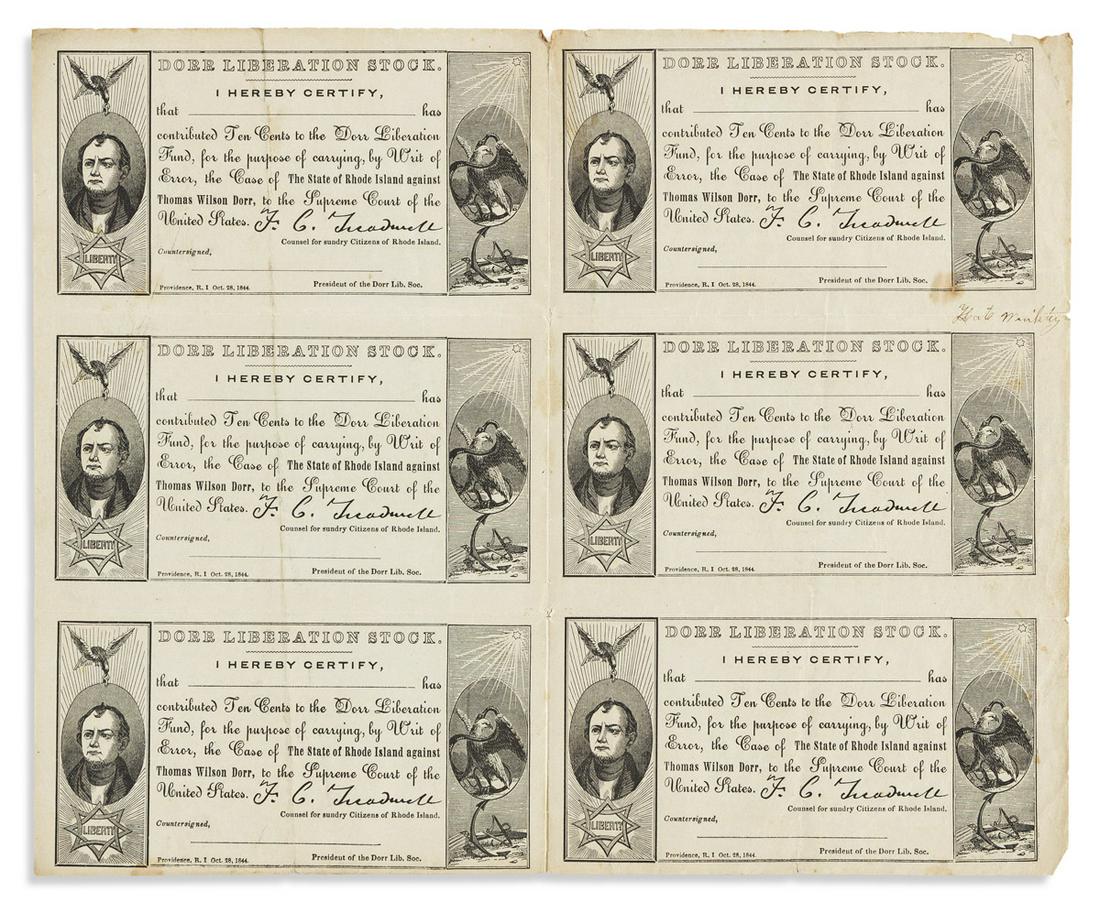 DORR LIBERATION STOCK.
I HEREBY CERTIFY,
that has
contributed Ten Cents to the Dorr Liberation
Fund, for the purpose of carrying, by Writ of
Error, the Case of The State of Rhode Island against
Thomas Wilson Dorr, to the Supreme Court of the
United States. F. C. Treadwell
Counsel for sundry Citizens of Rhode Island.
Countersigned,
Providence, R. I Oct. 28, 1844. President of the Dorr Lib. Soc.
LIBERTY
DORR LIBERATION STOCK.
I HEREBY CERTIFY,
that has
contributed Ten Cents to the Dorr Liberation
Fund, for the purpose of carrying, by Writ of
Error, the Case of The State of Rhode Island against
Thomas Wilson Dorr, to the Supreme Court of the
United States. F. C. Treadwell
Counsel for sundry Citizens of Rhode Island.
Countersigned,
Providence, R. I Oct. 28, 1844. President of the Dorr Lib. Soc.
LIBERTY
DORR LIBERATION STOCK.
I HEREBY CERTIFY,
that has
contributed Ten Cents to the Dorr Liberation
Fund, for the purpose of carrying, by Writ of
Error, the Case of The State of Rhode Island against
Thomas Wilson Dorr, to the Supreme Court of the
United States. F. C. Treadwell
Counsel for sundry Citizens of Rhode Island.
Countersigned,
Providence, R. I Oct. 28, 1844. President of the Dorr Lib. Soc.
LIBERTY
DORR LIBERATION STOCK.
I HEREBY CERTIFY,
that has
contributed Ten Cents to the Dorr Liberation
Fund, for the purpose of carrying, by Writ of
Error, the Case of The State of Rhode Island against
Thomas Wilson Dorr, to the Supreme Court of the
United States. F. C. Treadwell
Counsel for sundry Citizens of Rhode Island.
Countersigned,
Providence, R. I Oct. 28, 1844. President of the Dorr Lib. Soc.
LIBERTY
DORR LIBERATION STOCK.
I HEREBY CERTIFY,
that has
contributed Ten Cents to the Dorr Liberation
Fund, for the purpose of carrying, by Writ of
Error, the Case of The State of Rhode Island against
Thomas Wilson Dorr, to the Supreme Court of the
United States. F. C. Treadwell
Counsel for sundry Citizens of Rhode Island.
Countersigned,
Providence, R. I Oct. 28, 1844. President of the Dorr Lib. Soc.
LIBERTY
DORR LIBERATION STOCK.
I HEREBY CERTIFY,
that has
contributed Ten Cents to the Dorr Liberation
Fund, for the purpose of carrying, by Writ of
Error, the Case of The State of Rhode Island against
Thomas Wilson Dorr, to the Supreme Court of the
United States. F. C. Treadwell
Counsel for sundry Citizens of Rhode Island.
Countersigned,
Providence, R. I Oct. 28, 1844. President of the Dorr Lib. Soc.
LIBERTY